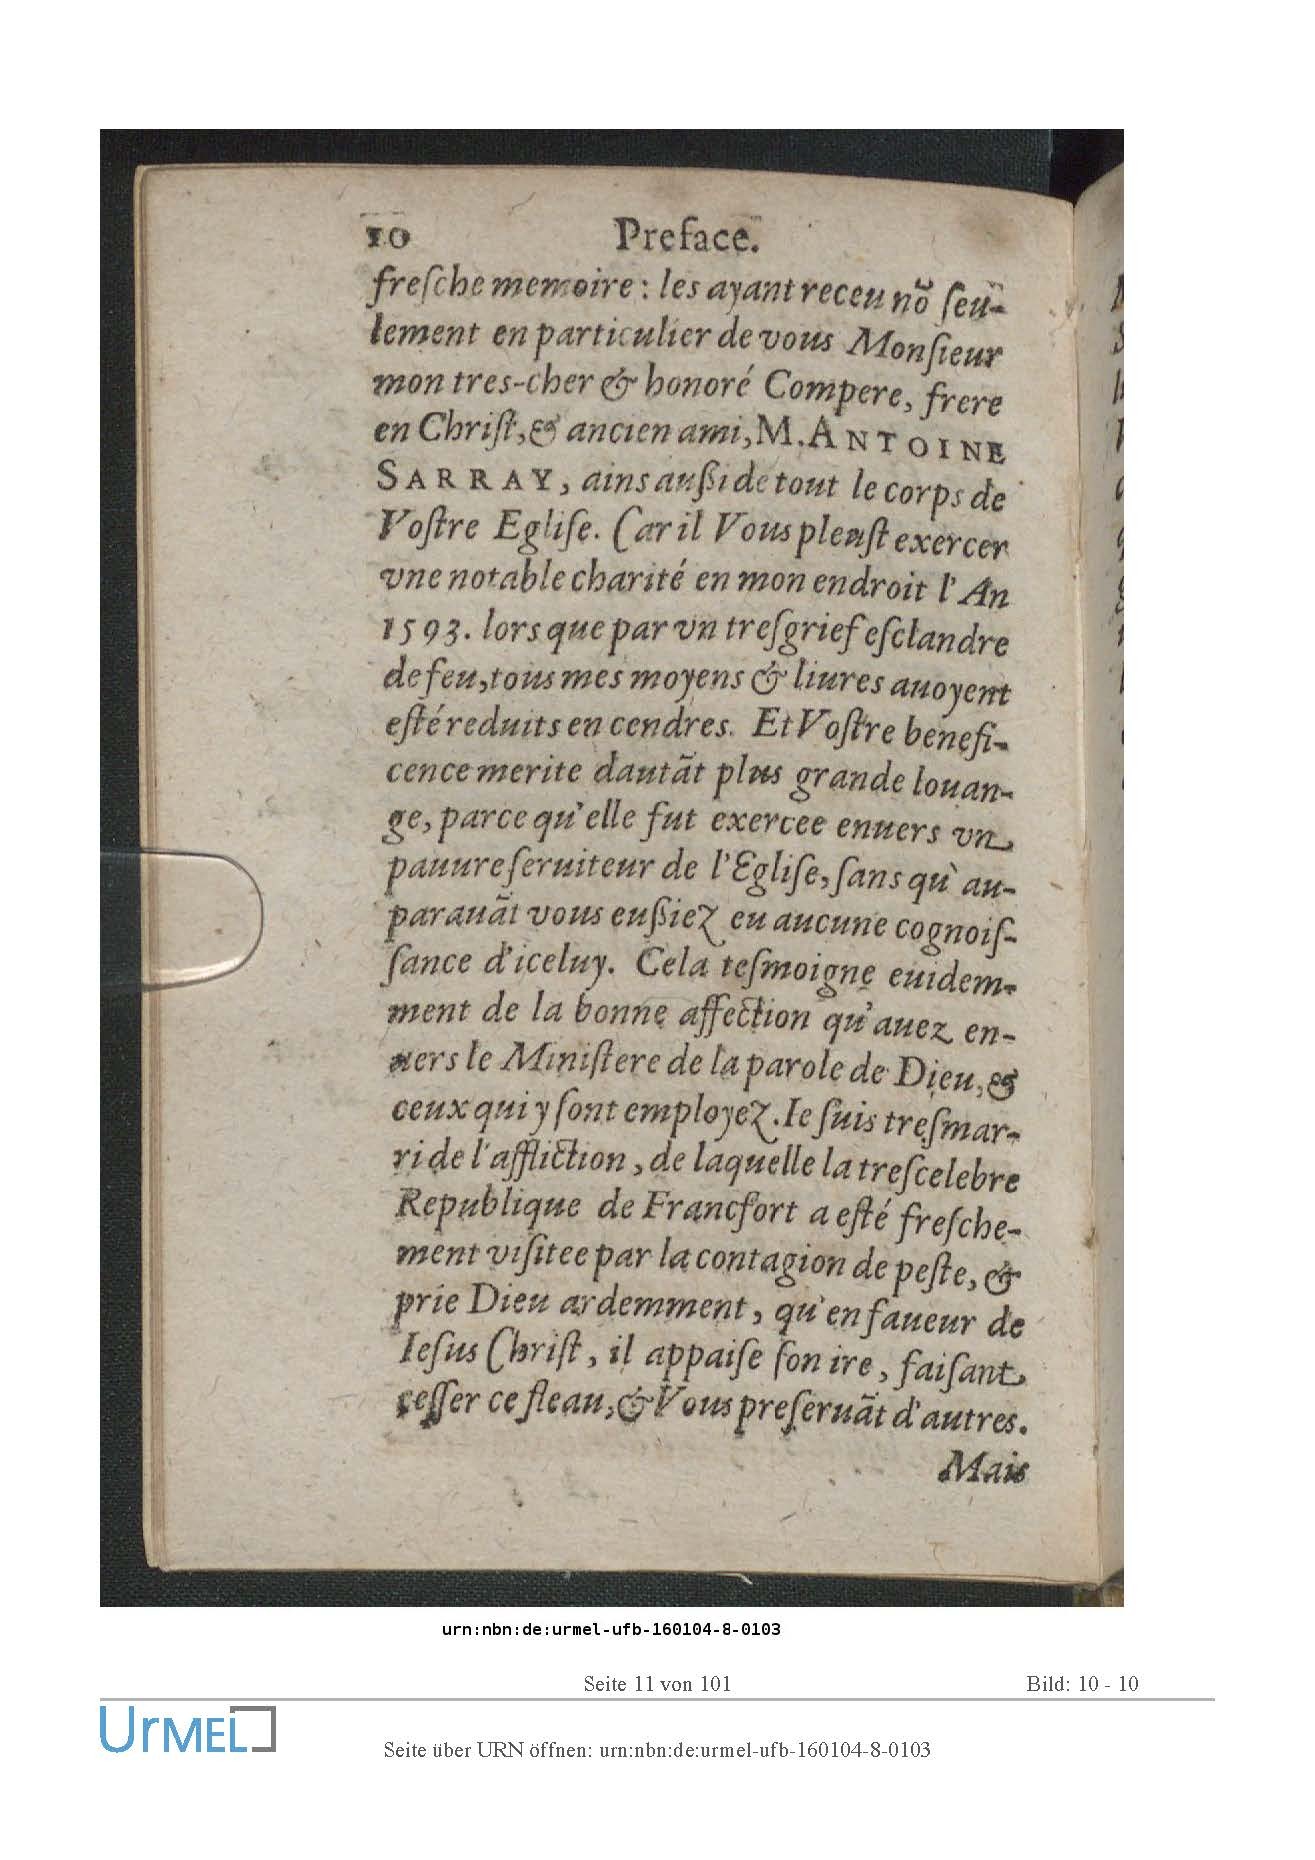 10 Preface.
freſche memoire : les ayant receu nõ ſeu-
lement en particulier de vous Monſieur
mon tres-cher & honoré Compere, frere
en Chriſt, & ancien ami, M. ANTOINE
SARRAY, ains auſſi de tout le corps de
Voſtre Egliſe. Car il Vous pleuſt exercer
vne notable charité en mon endroit l'An
1593. lors que par vn treſgrief eſclandre
de feu, tous mes moyens & liures auoyent
eſté reduits en cendres. Et Voſtre benefi-
cence merite dautãt plus grande louan-
ge, parce qu'elle fut exercee enuers vn
pauure ſeruiteur de l'Egliſe, ſans qu'au-
parauãt vous euſſiez eu aucune cognoiſ-
ſance d'iceluy. Cela teſmoigne euidem-
ment de la bonne affection qu'auez en-
uers le Miniſtere de la parole de Dieu, &
ceux qui y ſont employez. Ie ſuis treſmar-
ri de l'affliction, de laquelle la treſcelebre
Republique de Francfort a eſté freſche-
ment viſitee par la contagion de peſte, &
prie Dieu ardemment, qu'en faueur de
Ieſus Chriſt, il appaiſe ſon ire, faiſant
ceſſer ce fleau, & Vous preſeruãt d'autres.
Mais
urn:nbn:de:urmel-ufb-160104-8-0103
Seite 11 von 101 Bild: 10 - 10
UrMEL
Seite über URN öffnen: urn:nbn:de:urmel-ufb-160104-8-0103